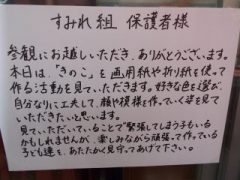 すみれ組 保護者様
参観にお越しいただき、ありがとうございます。
本日は、"きのこ"を画用紙や折り紙を使って
作る活動を見ていただきます。好きな色を選び、
自分なりに工夫して、顔や模様を作っていく姿を見て
いただきたいと思います。
見て、いただいていることで緊張してしまう子もいる
かもしれませんが、楽しみながら頑張って作っている
子ども達を、あたたかく見守ってあげて下さい。